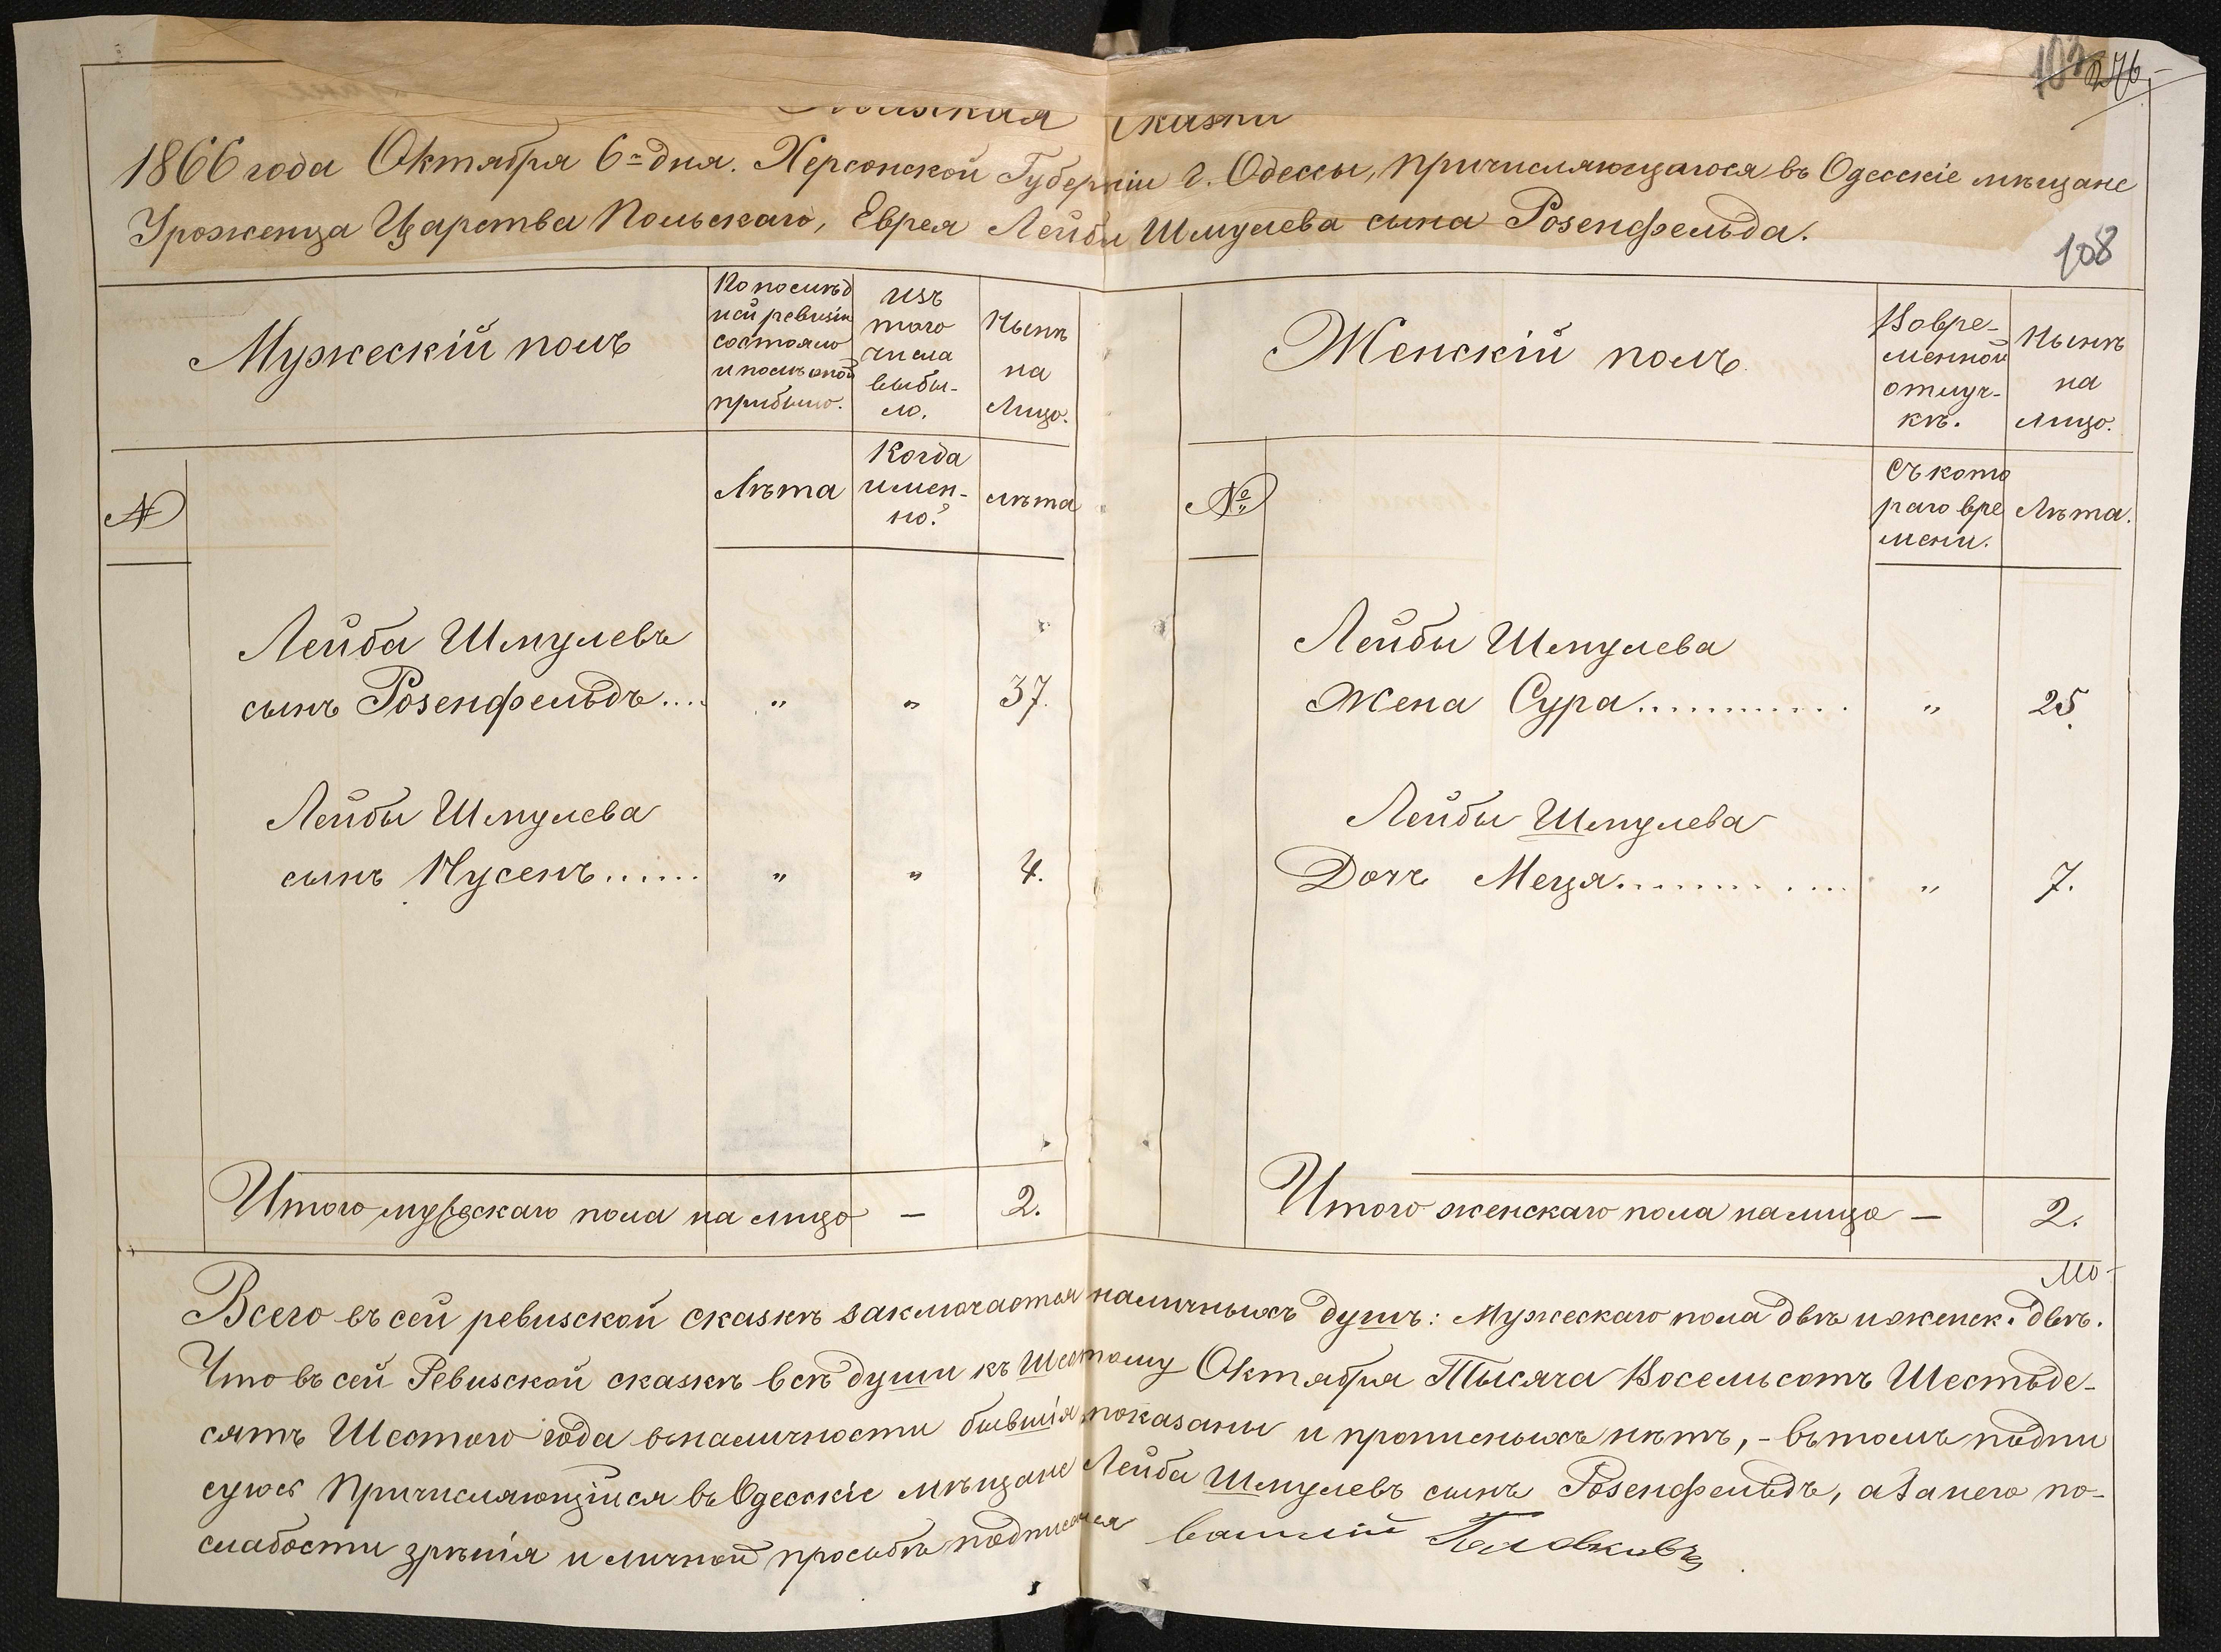 сказка
1866 года Октября 6го дня. Херсонской Губерніи г. Одессы, причисляющагося въ Одесскіе мѣщане
Уроженца Царства Польскаго, Еврея Лейбы Шмулева сына Розенфельда.
108
Мужескій полъ
По послѣд
ней ревизіи
состояло
и послѣ оной
прибыло.
Изъ
того
числа
выбы-
ло.
Нынѣ
на
лицо.
№
Лѣта
Когда
имен-
но?
лѣта
Лейба Шмулевъ
сынъ Розенфельдъ.... „ „ 37.
Лейбы Шмулева
сынъ Нусенъ...... „ „ 4.
Итого мужескаго пола на лицо – 2.
Женскій полъ
Во вре-
менной
отлуч-
кѣ.
Нынѣ
на
лицо.
№
Съ кото
раго вре
мени.
Лѣта.
Лейбы Шмулева
Жена Сура........... „ 25.
Лейбы Шмулева
Дочь Меця............ „ 7.
Итого женскаго пола на лицо – 2.
Всего въ сей ревизской сказкѣ заключается наличныхъ душъ: Мужескаго пола двѣ и женск. двѣ.
Что въ сей Ревизской сказкѣ всѣ души къ Шестому Октября Тысяча Восемьсотъ Шестьде-
сятъ Шестого года въ наличности бывшія показаны и прописныхъ нѣтъ, – въ томъ подпи
суюсь Причисляющійся въ Одесскіе мѣщане Лейба Шмулевъ сынъ Розенфельдъ, а за него по-
слабости зрѣнія и личной просьбѣ подписался